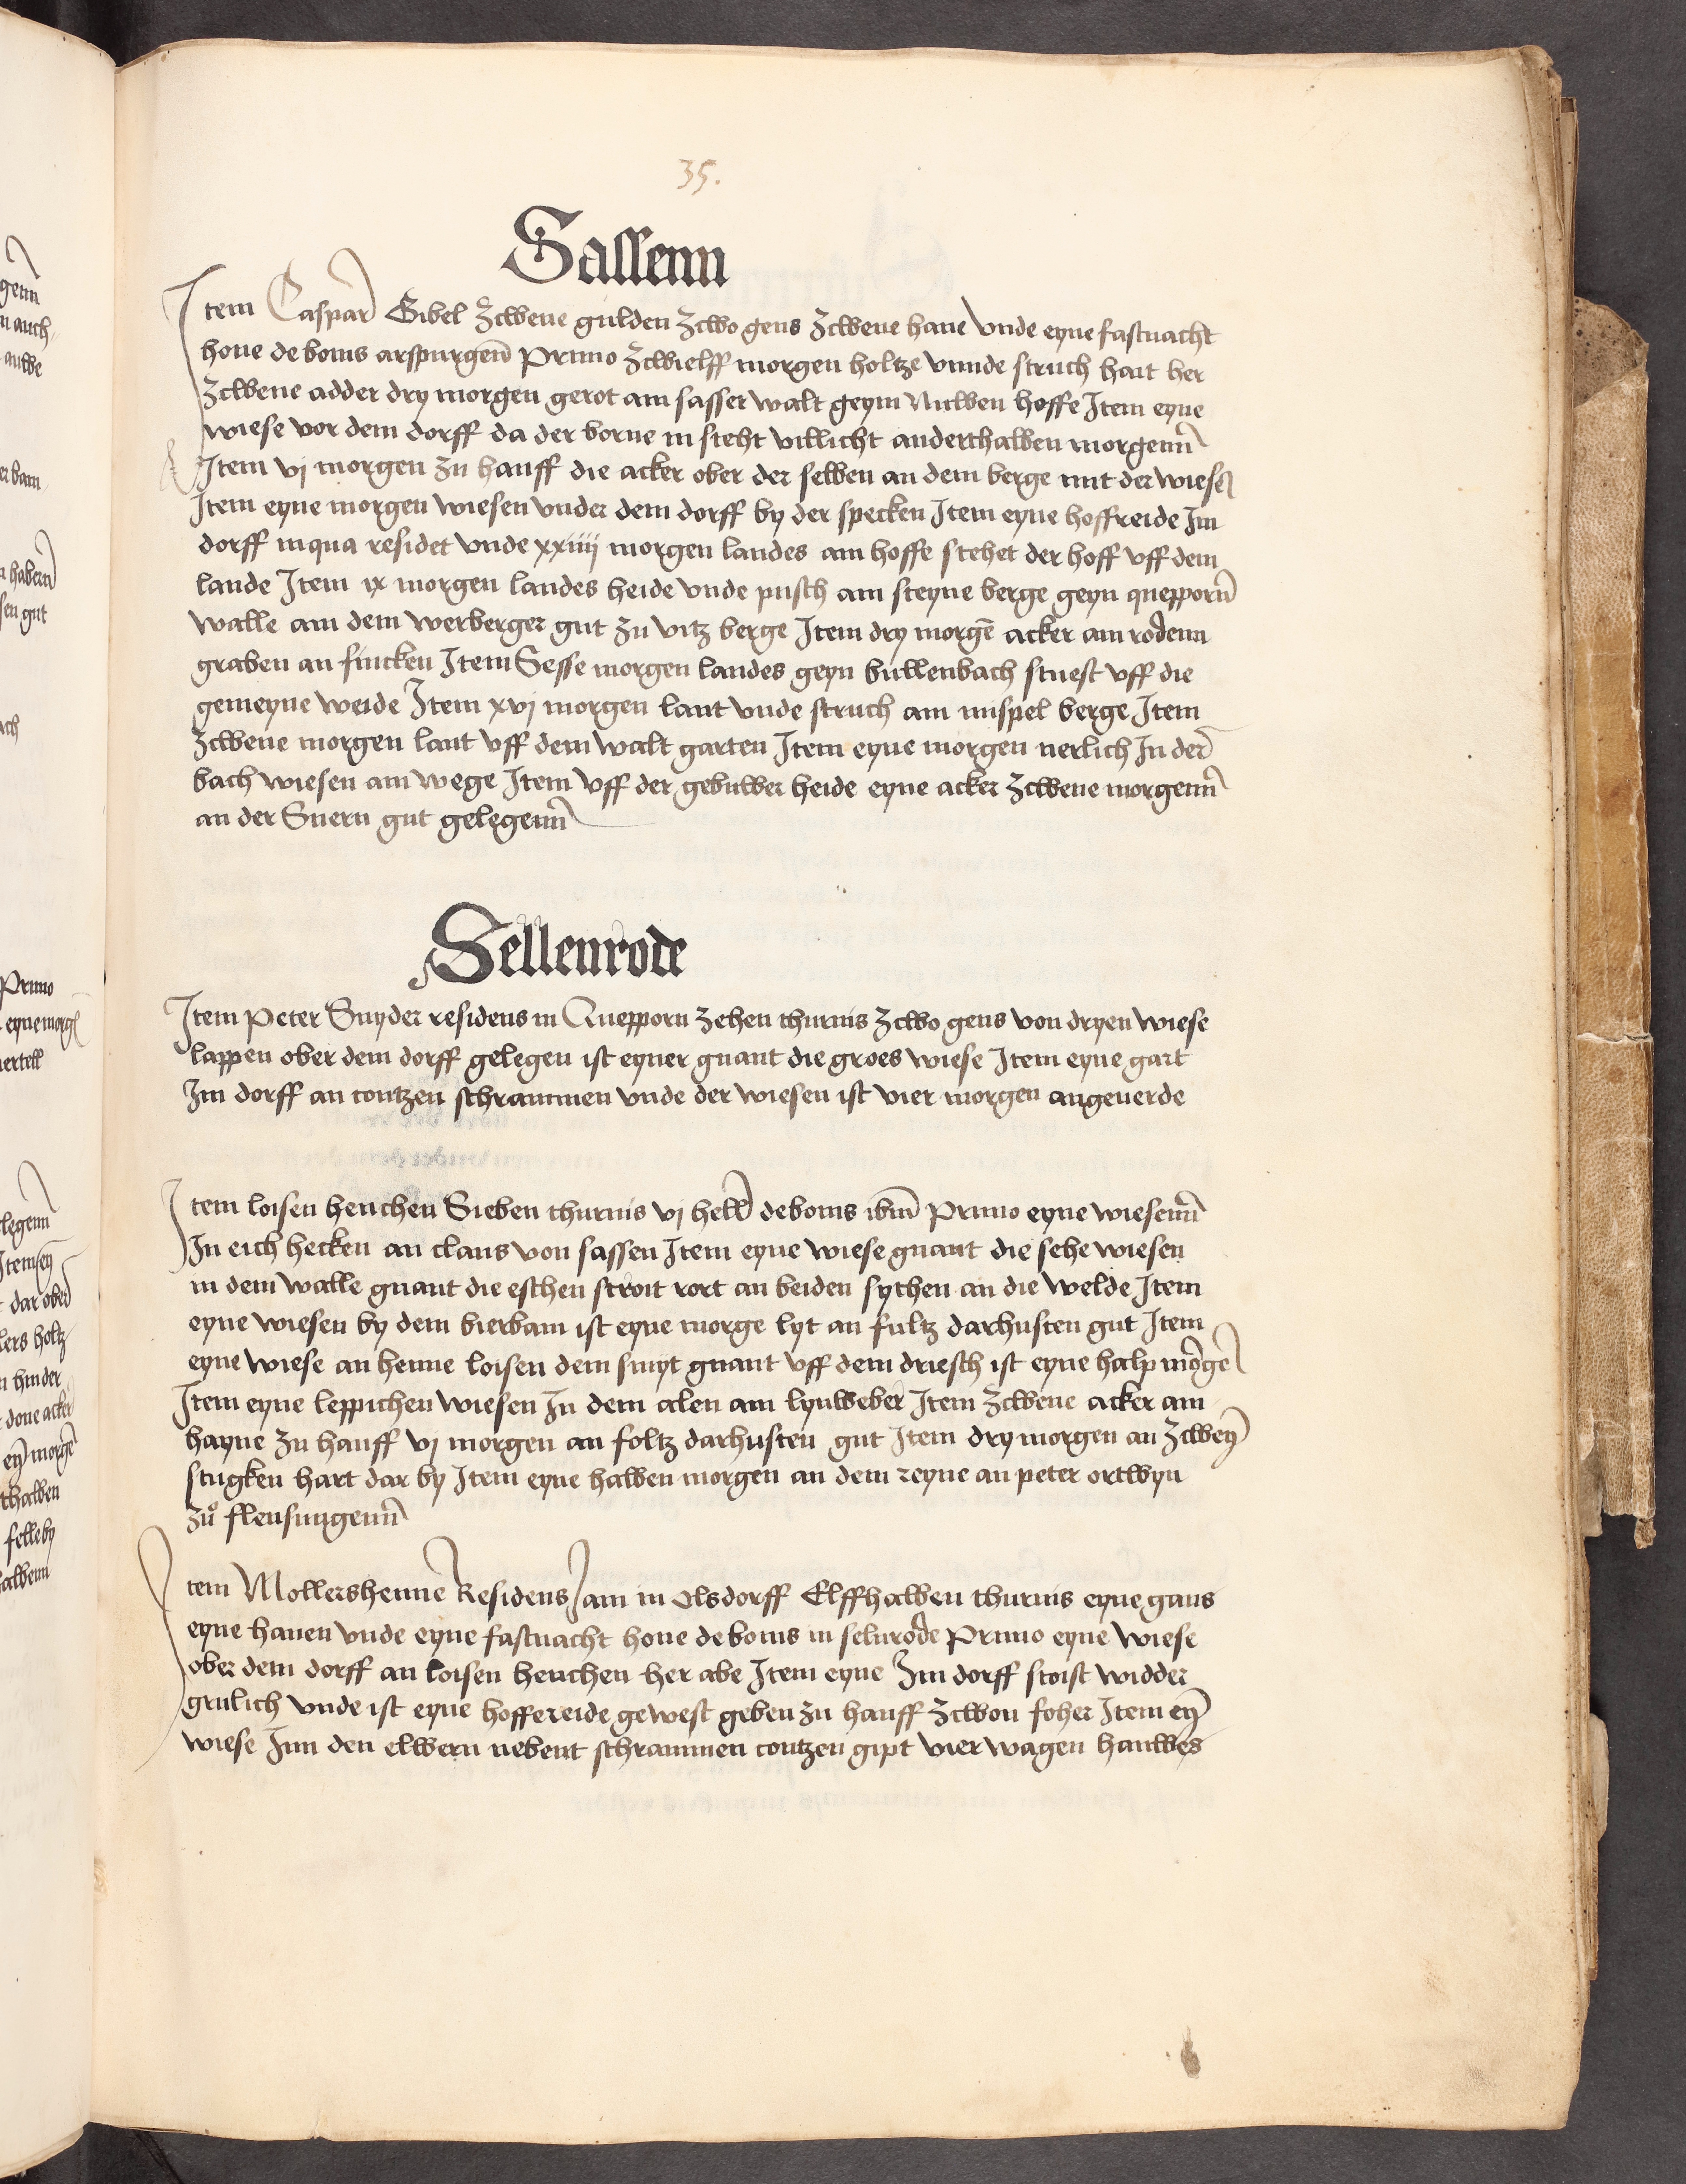 35.
Sassenn
Item Caspar Gibel zcwene gulden zcwo gens zcwene hane vnde eyne fastnacht
hone de bonis arspurgenn Primo zcwielff morgen holtze vnnde struch hait her
zcwene adder dry morgen gerot am sasser walt geyn Nuwen hoffe Item eyne
wiese vor dem dorff da der borne in steht villicht anderthalben morgenn
Item vj morgen zu hauff die acker ober der selben an dem berge mit der wiesen
Item eyne morgen wiesen vnder dem dorff by der specken Item eyne hoffreide Im
dorff inqua residet vnde xxiiij morgen landes am hoffe stehet der hoff vff dem
lande Item ix morgen landes heide vnde pusch am steyne berge geyn queppornn
walle am dem werberger gut zu vitz berge Item dry morgē acker am rodenn
graben an fincken Item Sesse morgen landes geyn bullenbach stuest vff die
gemeyne weide Item xvj morgen lant vnde struch am mispel berge Item
zcwene morgen lant vff dem walt garten Item eyne morgen nerlich In der
bach wiesen am wege Item vff der gebuwer heide eyne acker zcwene morgenn
an der Suern gut gelegenn
Sellenrode
Item Peter Snyder residens in Queppornn zehen thurnis zcwo gens von dryen wiese
lappen ober dem dorff gelegen ist eyner gnant die groes wiese Item eyne gart
Im dorff an contzen schrammen vnde der wiesen ist vier morgen angeuerde
Item loisen henchen Sieben thurnis vj hell de bonis ibm Primo eyne wiesenn
In eich hecken an claus von sassen Item eyne wiese gnant die sehe wiesen
in dem walle gnant die eschen stroit rort an beiden sythen an die welde Item
eyne wiesen by dem bierbam ist eyne morge lyt an fultz darhusten gut Item
eyne wiese an henne loisen dem smyt gnant vff dem driesch ist eyne halp morge
Item eyne leppichen wiesen In dem alen am lynweber Item zcwene acker am
hayne zu hauff vj morgen an foltz darhusten gut Item dry morgen an zcweyn
stugken hart dar by Item eyne halben morgen an dem reyne an peter ortwyn
zů flensungenn
Item Mollershenne Residens Jam in olsdorff Elffhalben thurnis eyne gans
eyne hanen vnde eyne fastnacht hone de bonis in selnrode Primo eyne wiese
ober dem dorff an loisen henchen her abe Item eyne Im dorff stoist widder
grulich vnde ist eyne hoffereide gewest geben zu hauff zcwon foher Item eyn
wiese Inn den elwern nebent schrammen contzen gipt vier wagen hauwes